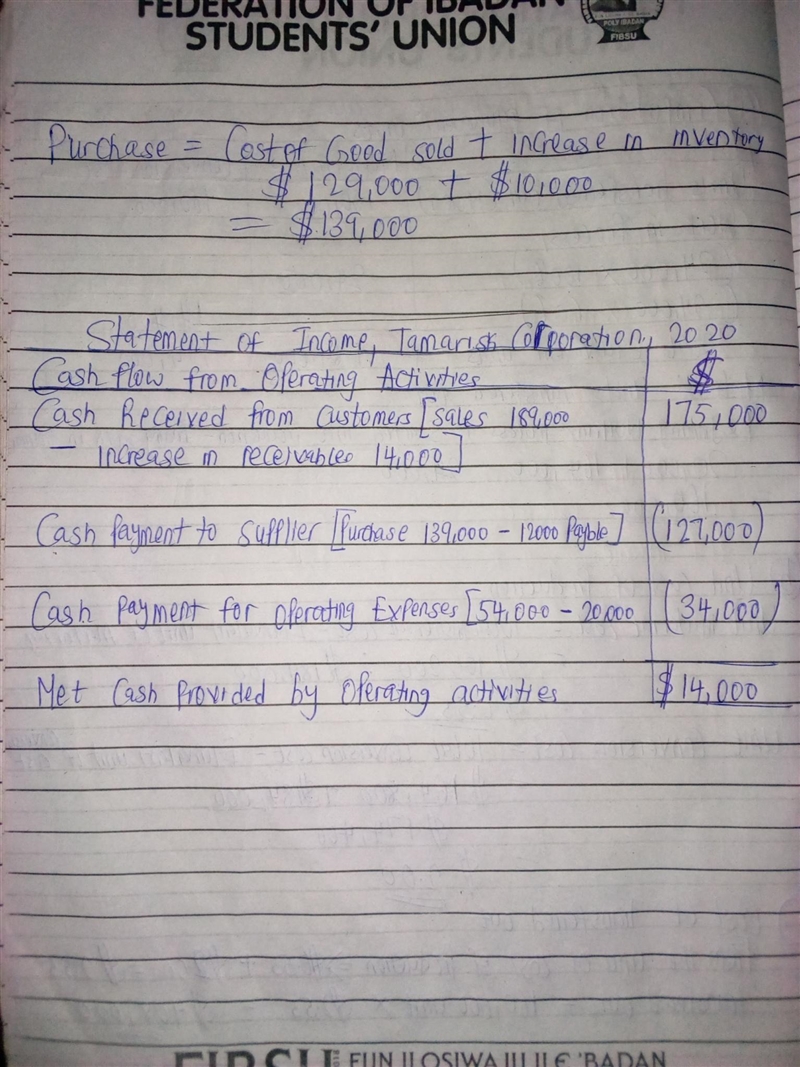 FEDERATION OF IBADAN
STUDENTS' UNION
POLY IBADAN
FIBSU
Purchase = Cost of Good sold + increase in inventory
$129,000 + $10,000
= $139,000
Statement of Income, Tamarisk Corporation, 2020
Cash flow from Operating Activities $
Cash Received from Customers [Sales 189,000 175,000
- Increase in receivables 14,000]
Cash Payment to Supplier [Purchase 139,000 - 12000 Payble] (127,000)
Cash Payment for Operating Expenses [54,000 - 20,000 (34,000)
Net Cash Provided by Operating activities $14,000